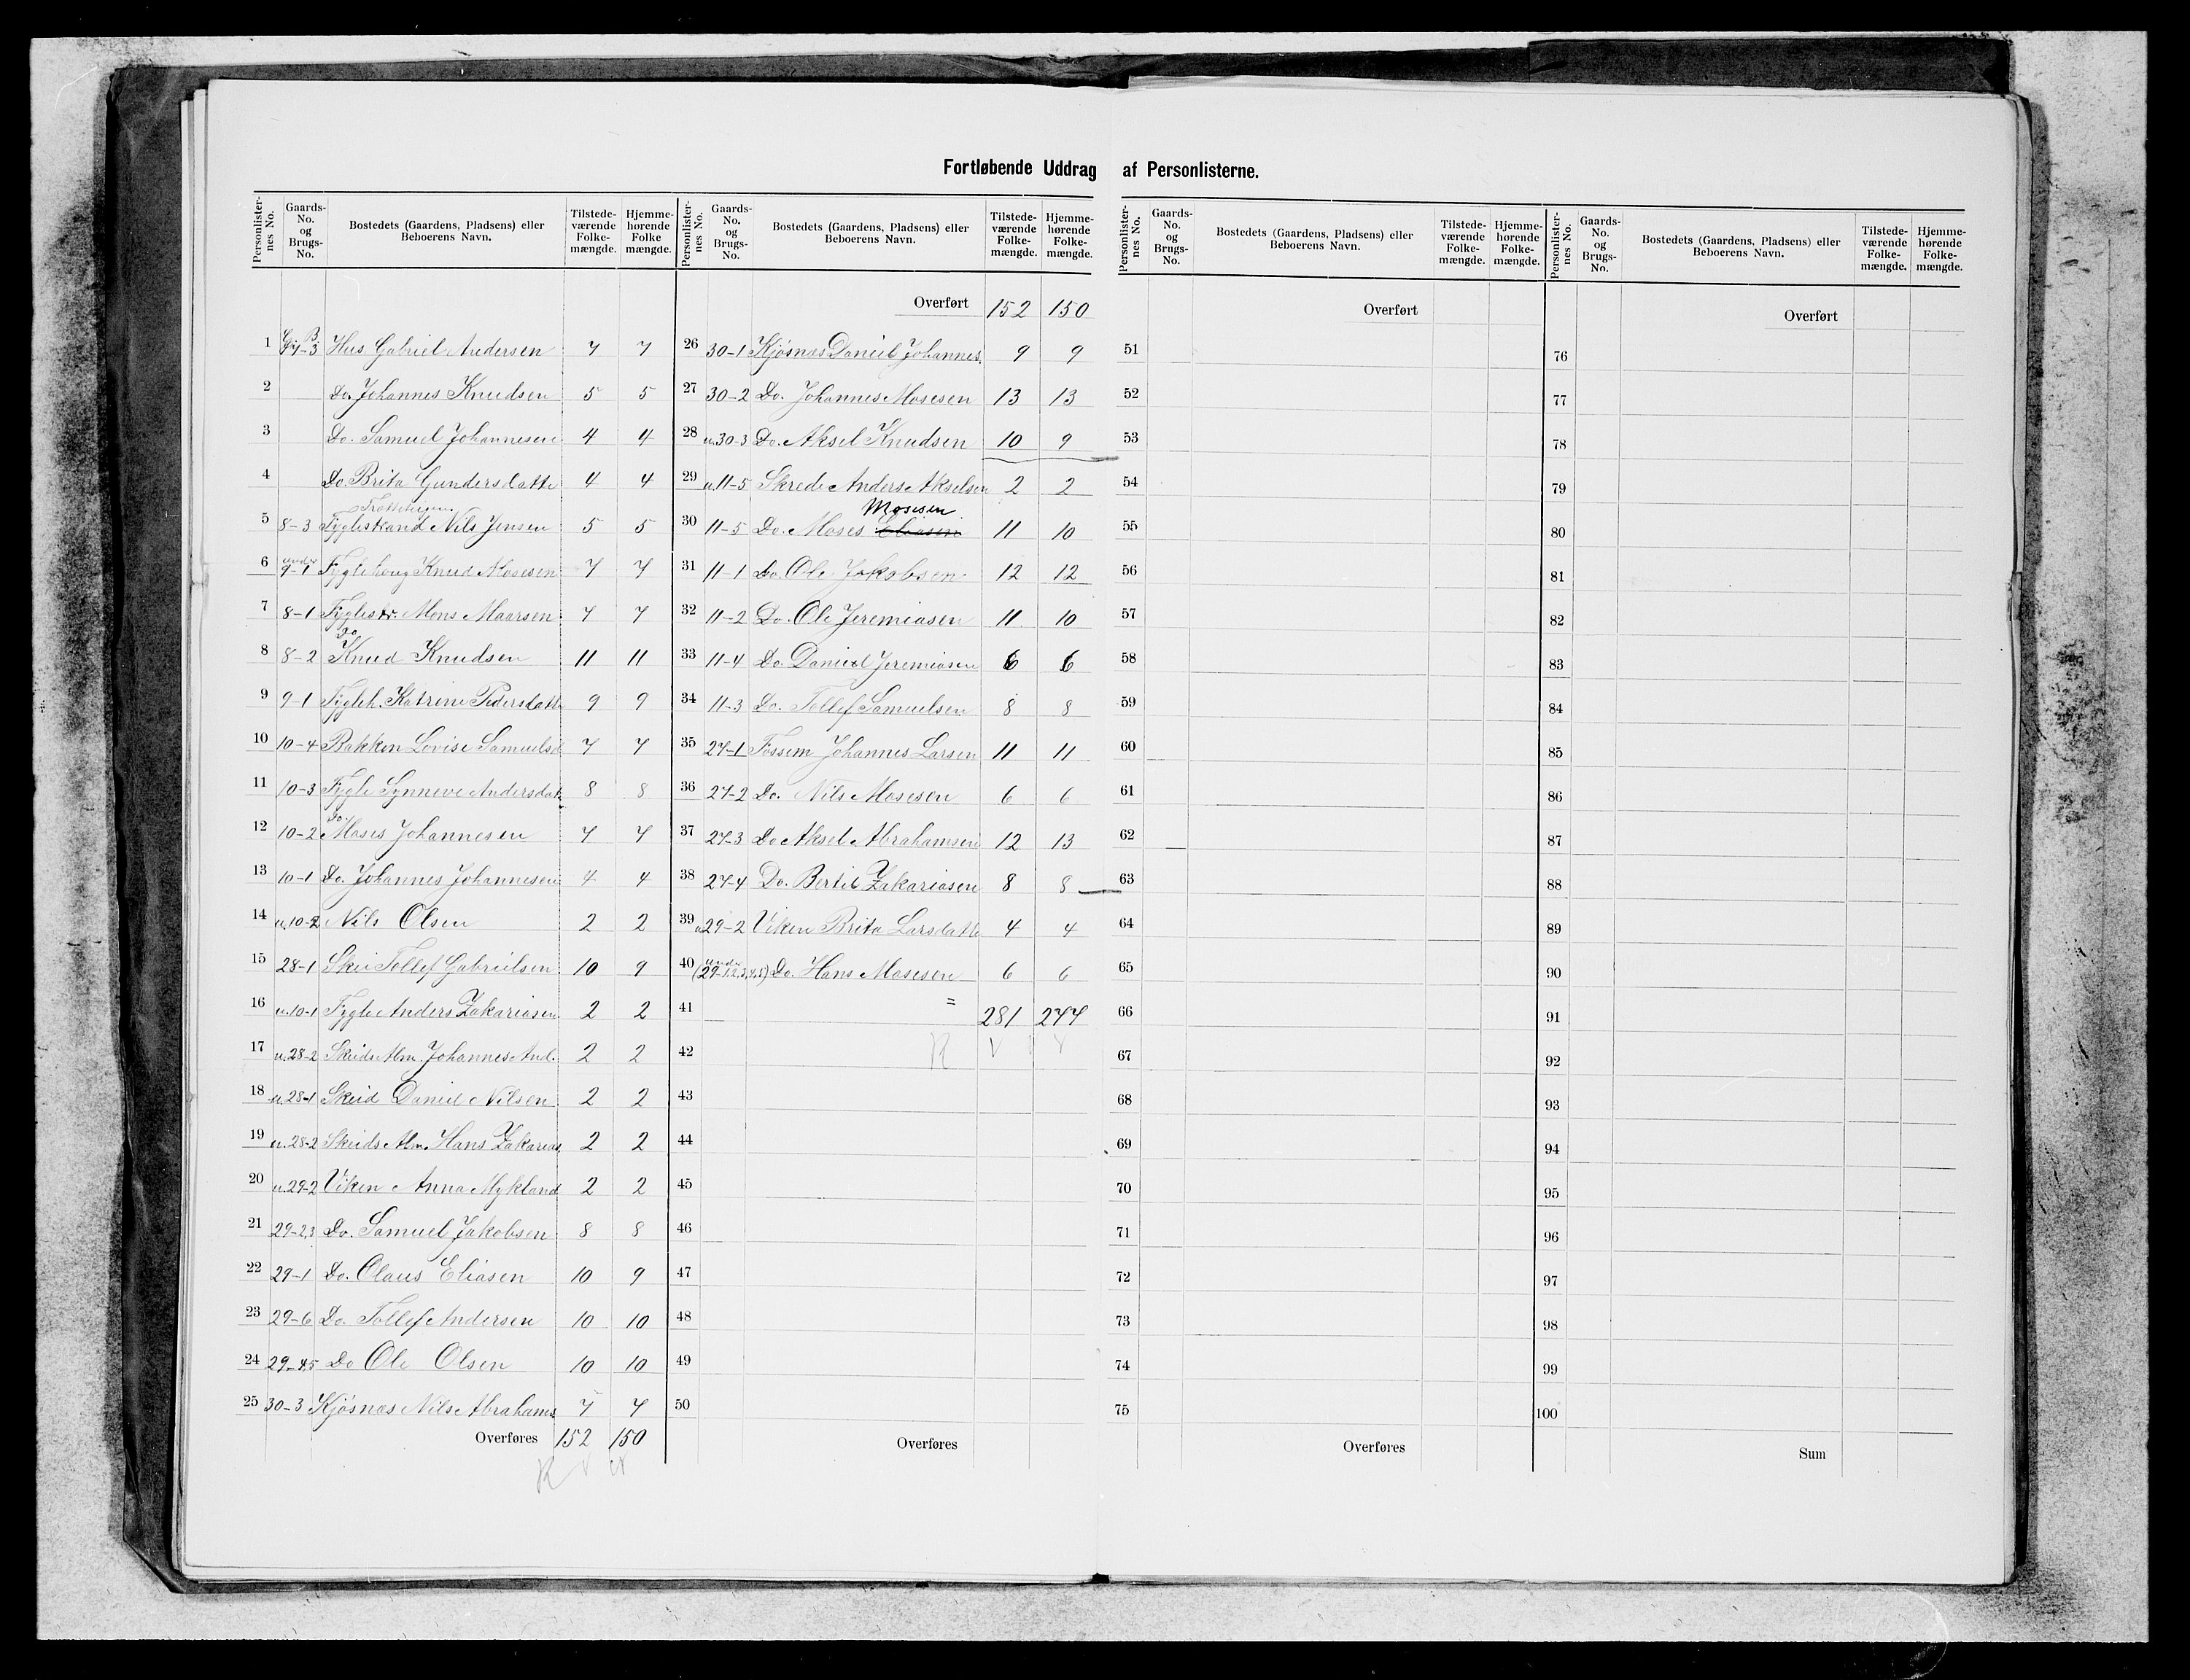 Fortløbende Uddrag af Personlisterne.
Personlisternes No. Gaards-No. og Brugs-No. Bostedets (Gaardens, Pladsens) eller Beboerens Navn. Tilstedeværende Folkemængde. Hjemmehørende Folke mængde.
1 7-3 Hus Gabriel Andersen 7 7
2 Do. Johannes Knudsen 5 5
3 Do. Samuel Johannesen 4 4
4 Do. Brita Gundersdatte 4 4
5 8-3 Fyglestrand Nils Jensen 5 5
6 under 9-1 Fyglehoug Knud Mosesen 7 7
7 8-1 Fyglestr. Mons Maarsen 7 7
8 8-2 Do Knud Knudsen 11 11
9 9-1 Fygleh. Katrine Pedersdatte 9 9
10 10-4 Bakken Lovise Samuelsd 7 7
11 10-3 Fygle Synneve Andersdat 8 8
12 10-2 Do. Moses Johannesen 7 7
13 10-1 Do. Johannes Johannesen 4 4
14 u.10-2 Nils Olsen 2 2
15 28-1 Skei Tollef Gabrielsen 10 9
16 u.10-1 Fygle Anders Zakariasen 2 2
17 u.28-2 Skeids Alm. Johannes And. 2 2
18 u.28-1 Skeid Daniel Nilsen 2 2
19 u.28-2 Skeids Alm. Hans Zakarias. 2 2
20 u.29-2 Viken Anna Mykland 2 2
21 29-2,3 Do. Samuel Jakobsen 8 8
22 29-1 Do. Olaus Eliasen 10 9
23 29-6 Do. Tollef Andersen 10 10
24 29-4,5 Do Ole Olsen 10 10
25 30-3 Kjøsnæs Nils Abrahams. 7 7
Overføres 152 150
Personlisternes No. Gaards-No. og Brugs-No. Bostedets (Gaardens, Pladsens) eller Beboerens Navn. Tilstedeværende Folkemængde. Hjemmehørende Folkemængde.
Overført 152 150
26 30-1 Kjøsnæs Daniel Johannes. 9 9
27 30-2 Do. Johannes Mosesen 13 13
28 u.30-3 Do. Aksel Knudsen 10 9
29 u.11-5 Skrede Anders Akselsen 2 2
30 11-5 Do. Moses Eliasen Mosesen 11 10
31 11-1 Do. Ole Jakobsen 12 12
32 11-2 Do. Ole Jeremiasen 11 10
33 11-4 Do. Daniel Jeremiasen 6 6
34 11-3 Do. Tollef Samuelsen 8 8
35 27-1 Fossem Johannes Larsen 11 11
36 27-2 Do. Nils Mosesen 6 6
37 27-3 Do Aksel Abrahamsen 12 13
38 27-4 Do. Bertil Zakariasen 8 8
39 u29-2 Viken Brita Larsdatte 4 4
40 under (29-1,2,3,4,5) Do. Hans Mosesen 6 6
41 = 281 277
42
43
44
45
46
47
48
49
50
Overføres
Personlisternes No. Gaards-No. og Brugs-No. Bostedets (Gaardens, Pladsens) eller Beboerens Navn. Tilstedeværende Folkemængde. Hjemmehørende Folkemængde.
Overført
51
52
53
54
55
56
57
58
59
60
61
62
63
64
65
66
67
68
69
70
71
72
73
74
75
Overføres
Personlisternes No. Gaards-No. og Brugs-No. Bostedets (Gaardens, Pladsens) eller Beboerens Navn. Tilstedeværende Folkemængde. Hjemmehørende Folkemængde.
Overført
76
77
78
79
80
81
82
83
84
85
86
87
88
89
90
91
92
93
94
95
96
97
98
99
100
Sum